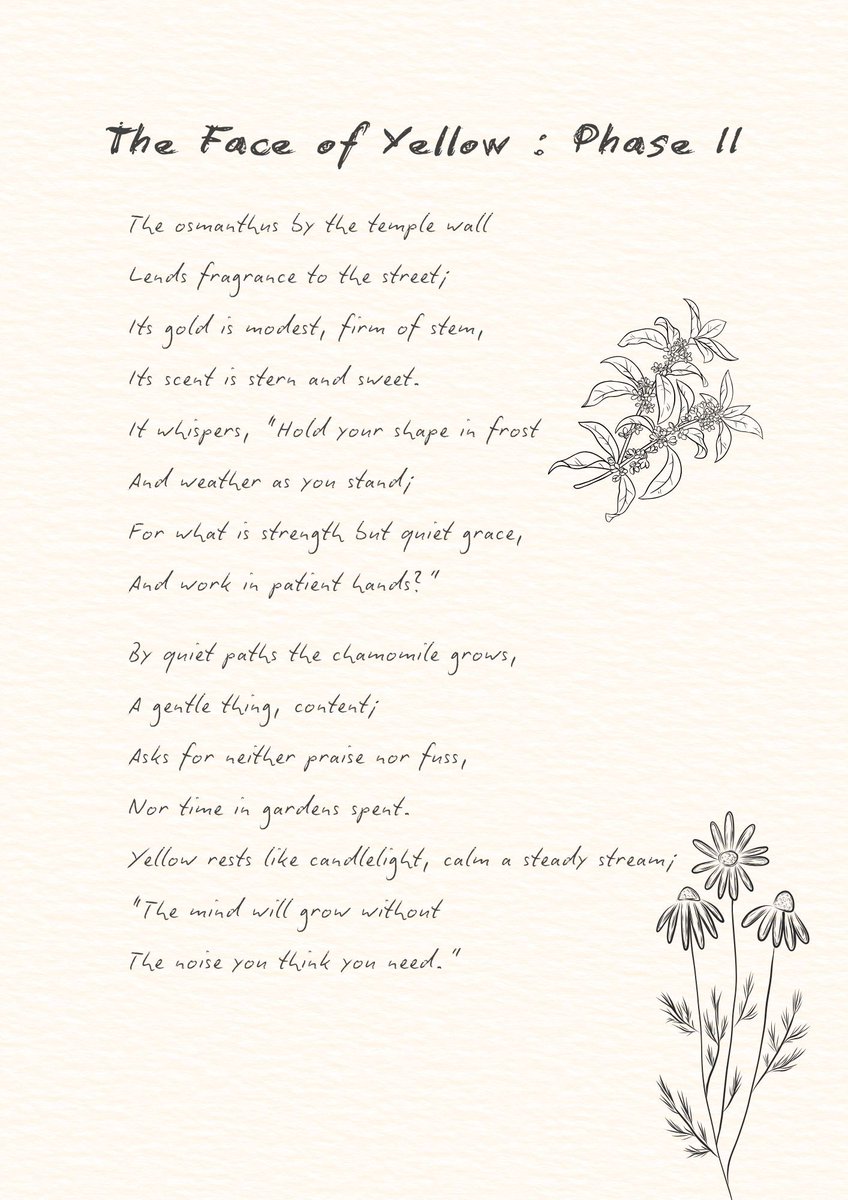 The Face of Yellow : Phase II
The osmanthus by the temple wall
Lends fragrance to the street;
Its gold is modest, firm of stem,
Its scent is stern and sweet.
It whispers, "Hold your shape in frost
And weather as you stand;
For what is strength but quiet grace,
And work in patient hands?"
By quiet paths the chamomile grows,
A gentle thing, content;
Asks for neither praise nor fuss,
Nor time in gardens spent.
Yellow rests like candlelight, calm a steady stream;
"The mind will grow without
The noise you think you need."